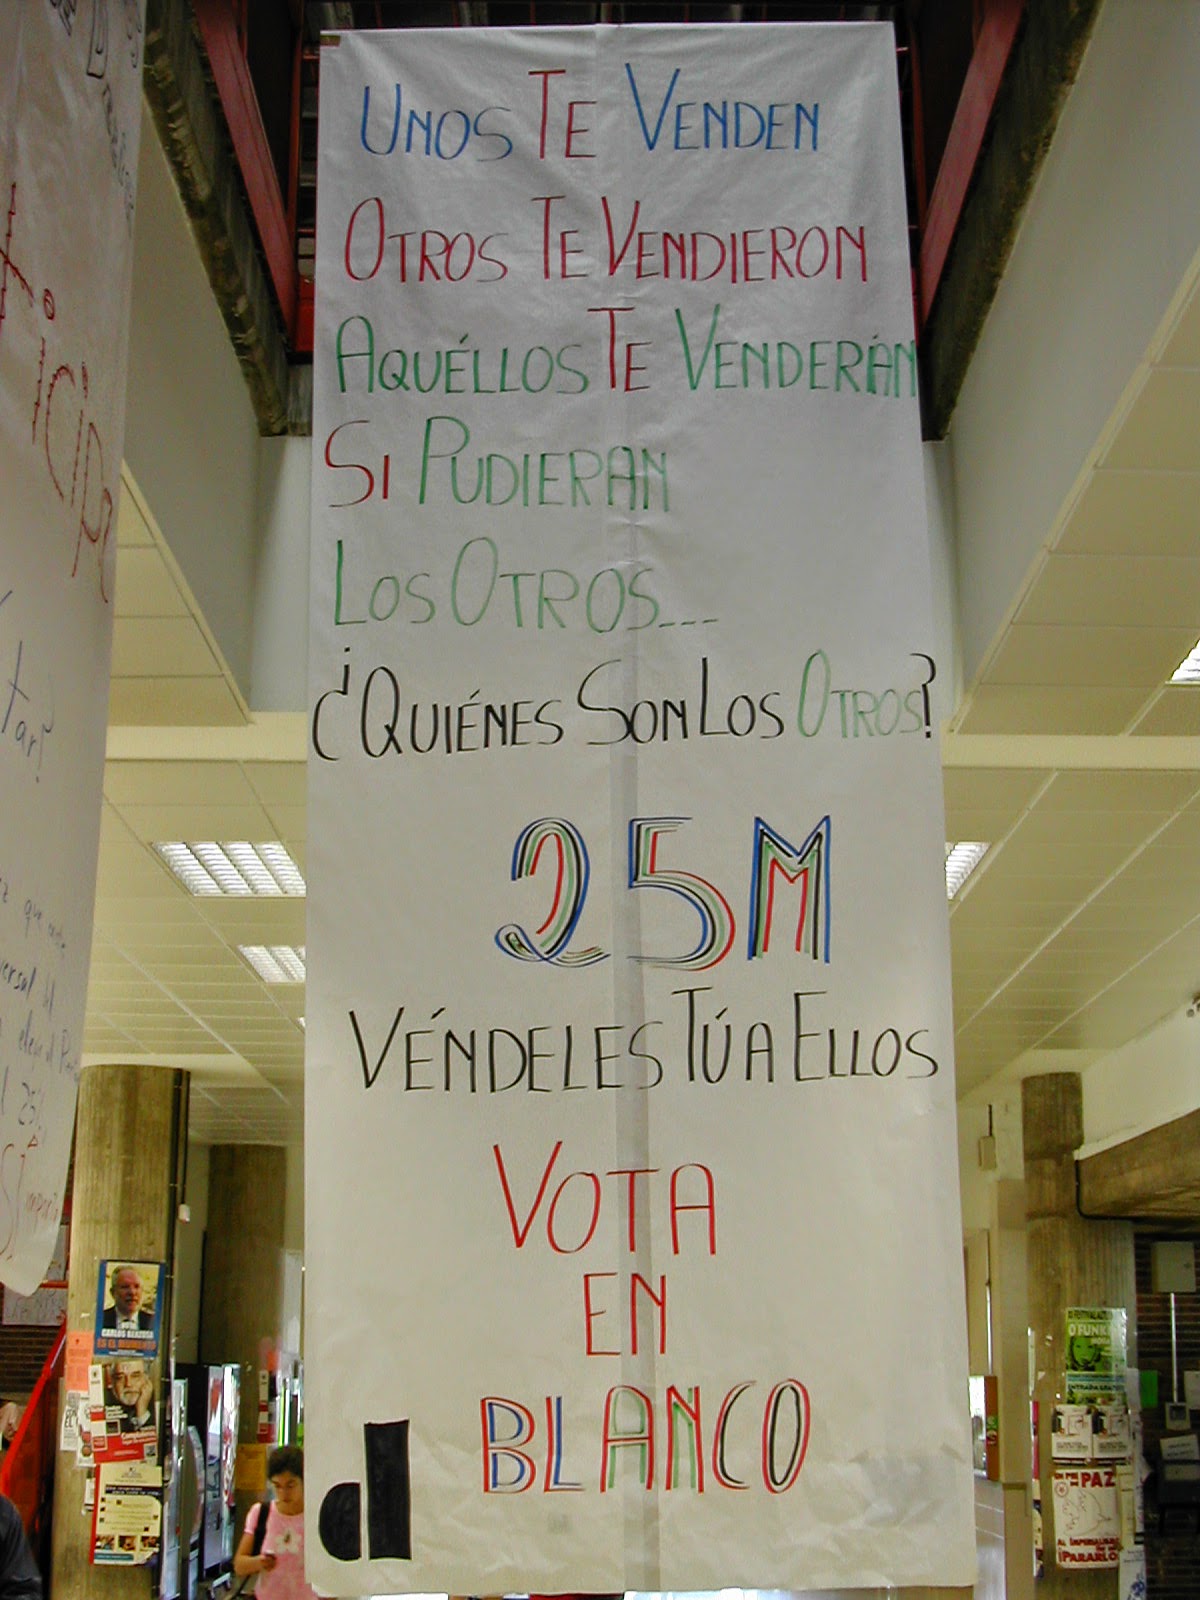 UNOS TE VENDEN
OTROS TE VENDIERON
AQUÉLLOS TE VENDERÁN
SI PUDIERAN
LOS OTROS...
¿QUIÉNES SON LOS OTROS?
25M
VÉNDELES TÚ A ELLOS
VOTA
EN
BLANCO
d
icip
tar?
25%
SÍ
PAZ
¡PARARLO!